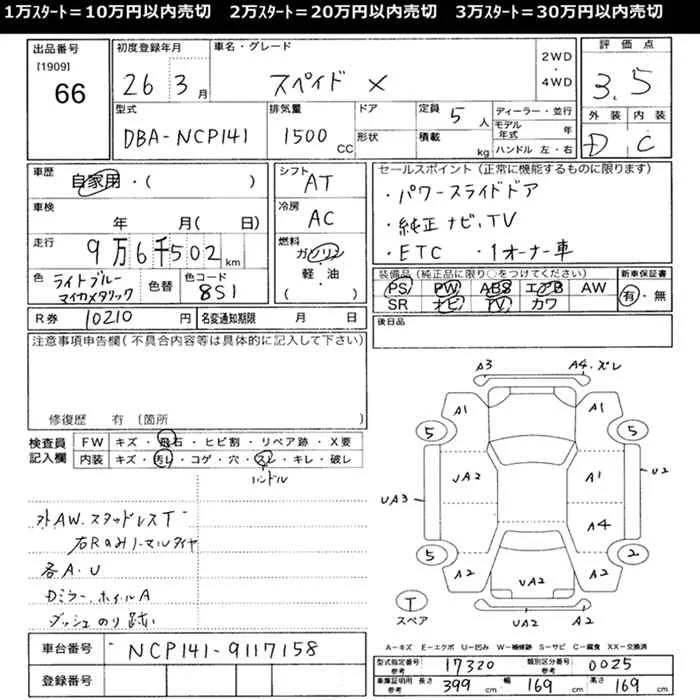 1万ｽﾀｰﾄ＝10万円以内売切　2万ｽﾀｰﾄ＝20万円以内売切　3万ｽﾀｰﾄ＝30万円以内売切
出品番号
[1909]
66
初度登録年月
26 3月
車名・グレード
スペイド X
2WD
・
4WD
評価点
3.5
外装 内装
D C
型式
DBA-NCP141
排気量
1500 CC
ドア
形状
定員 5 人
積載 kg
ディーラー・並行
モデル年式 年
ハンドル 左・右
車歴
自家用・( )
車検
年 月( 日)
走行
9万6千502km
色
ライトブルーマイカメタリック
色替
色コード
8S1
シフト
AT
冷房
AC
燃料
ガソリン
・
軽・油
( )
セールスポイント (正常に機能するものに限ります)
・パワースライドドア
・純正ナビ、TV
・ETC ・1オーナー車
装備品 (純正品に限り○をつけてください)
PS PW ABS エアB AW
SR ナビ TV カワ
新車保証書
有・無
R券 10210 円
名変通知期限 月 日
後日品
注意事項申告欄 (不具合内容等は具体的に記入して下さい)
修復歴 有 (箇所 )
検査員
記入欄
FW キズ・飛石・ヒビ割・リペア跡・X要
内装 キズ・汚レ・コゲ・穴・スレ・キレ・破レ
ハンドル
外AW.スタッドレスT
右Rのみノーマルタイヤ
各A.U
Dミラー.ホイルA
ダッシュのり跡
A3 A4.ズレ
A1 A1
5 5
UA3 UA2 A1 U2
A4
5 2
A2 UA2 A2
T
スペア
UA2 A2
A－キズ E－エクボ U－凹み W－補修跡 S－サビ C－腐食 XX－交換済
車台番号 NCP141-9117158
登録番号
型式指定番号 参考 17320 類別区分番号 参考 0025
車庫証明用 参考 長さ 399 cm 幅 169 cm 高さ 169 cm